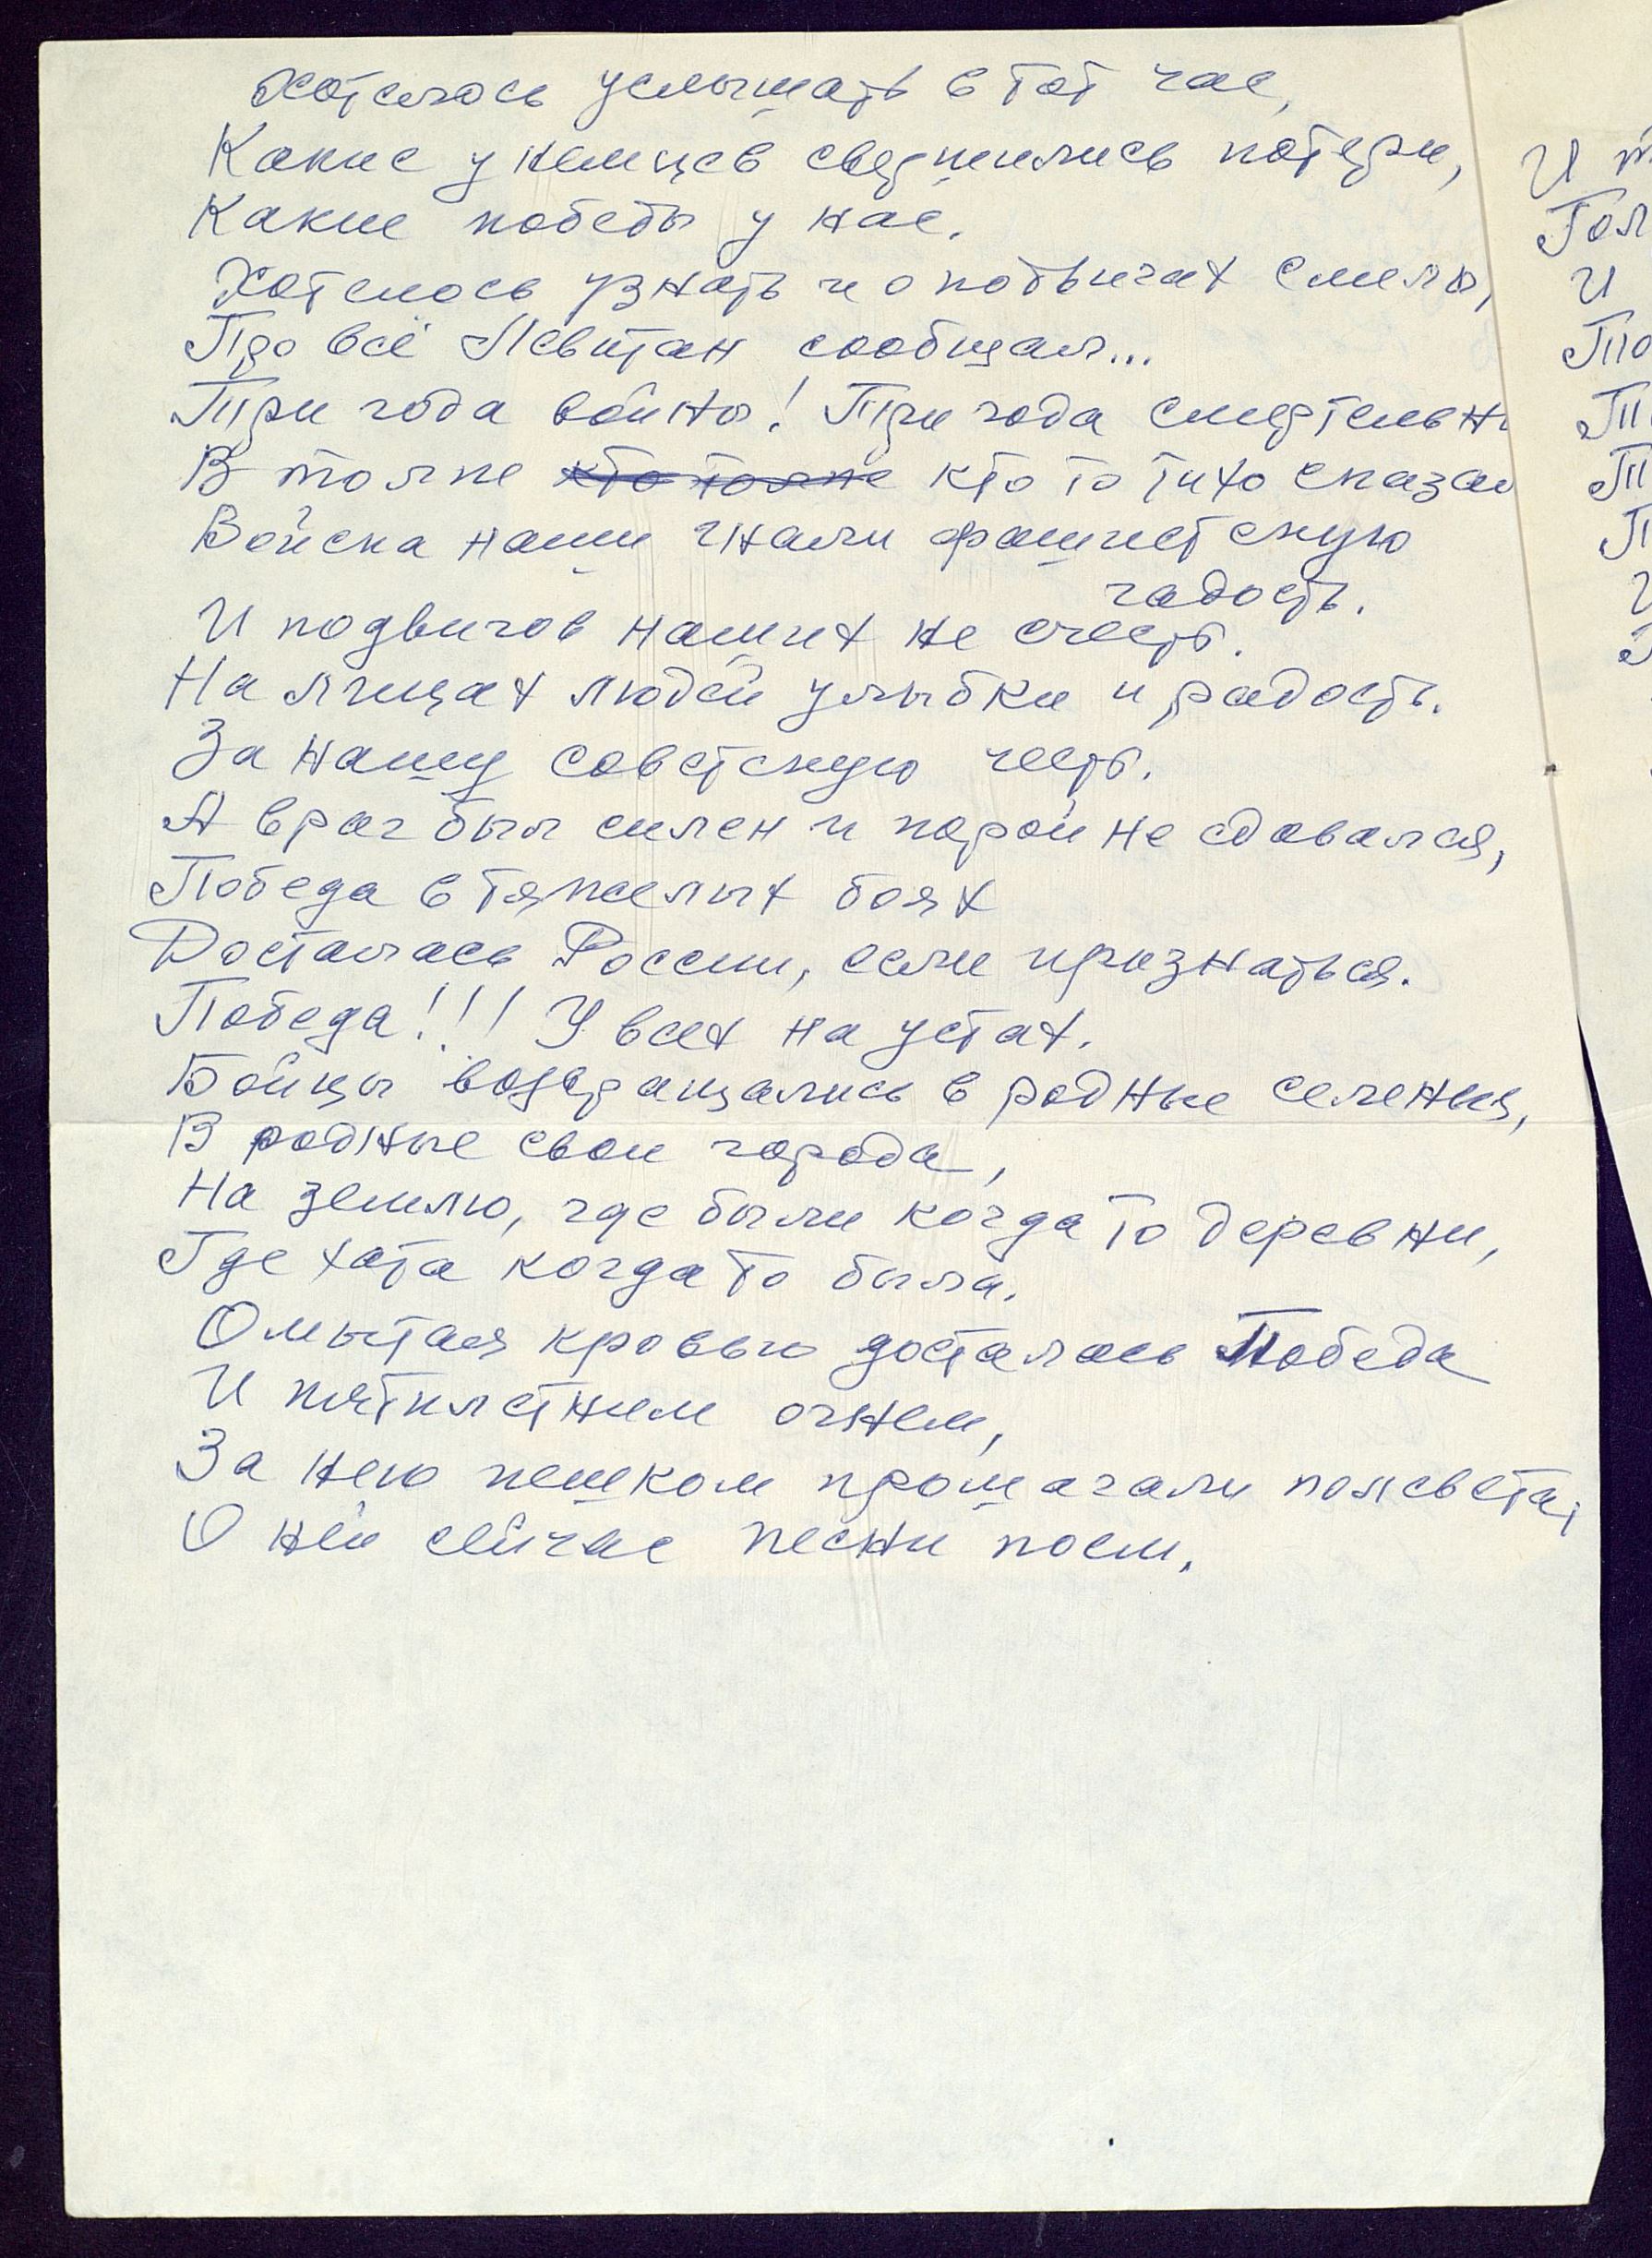 Хотелось услышать в тот час,
Какие у немцев свершились потери,
Какие победы у нас.
Хотелось узнать и о подвигах смелых,
Про всё Левитан сообщал...
Три года войны! Три года смертельн
В толпе кто толпе кто то тихо сказал
Войска наши гнали фашистскую
гадость.
И подвигов наших не счесть.
На лицах людей улыбки и радость.
За нашу советскую честь.
А враг был силен и порой не сдавался,
Победа в тяжелых боях
Досталась России, если признаться.
Победа!!! У всех на устах.
Бойцы возвращались в родные селения,
В родные свои города,
На землю, где были когда то деревни,
Где хата когда то была.
Омытая кровью досталась Победа
И пятилетним огнем,
За нею пешком прошагали полсвета,
О ней сейчас песни поем.
И т
Гол
И
По